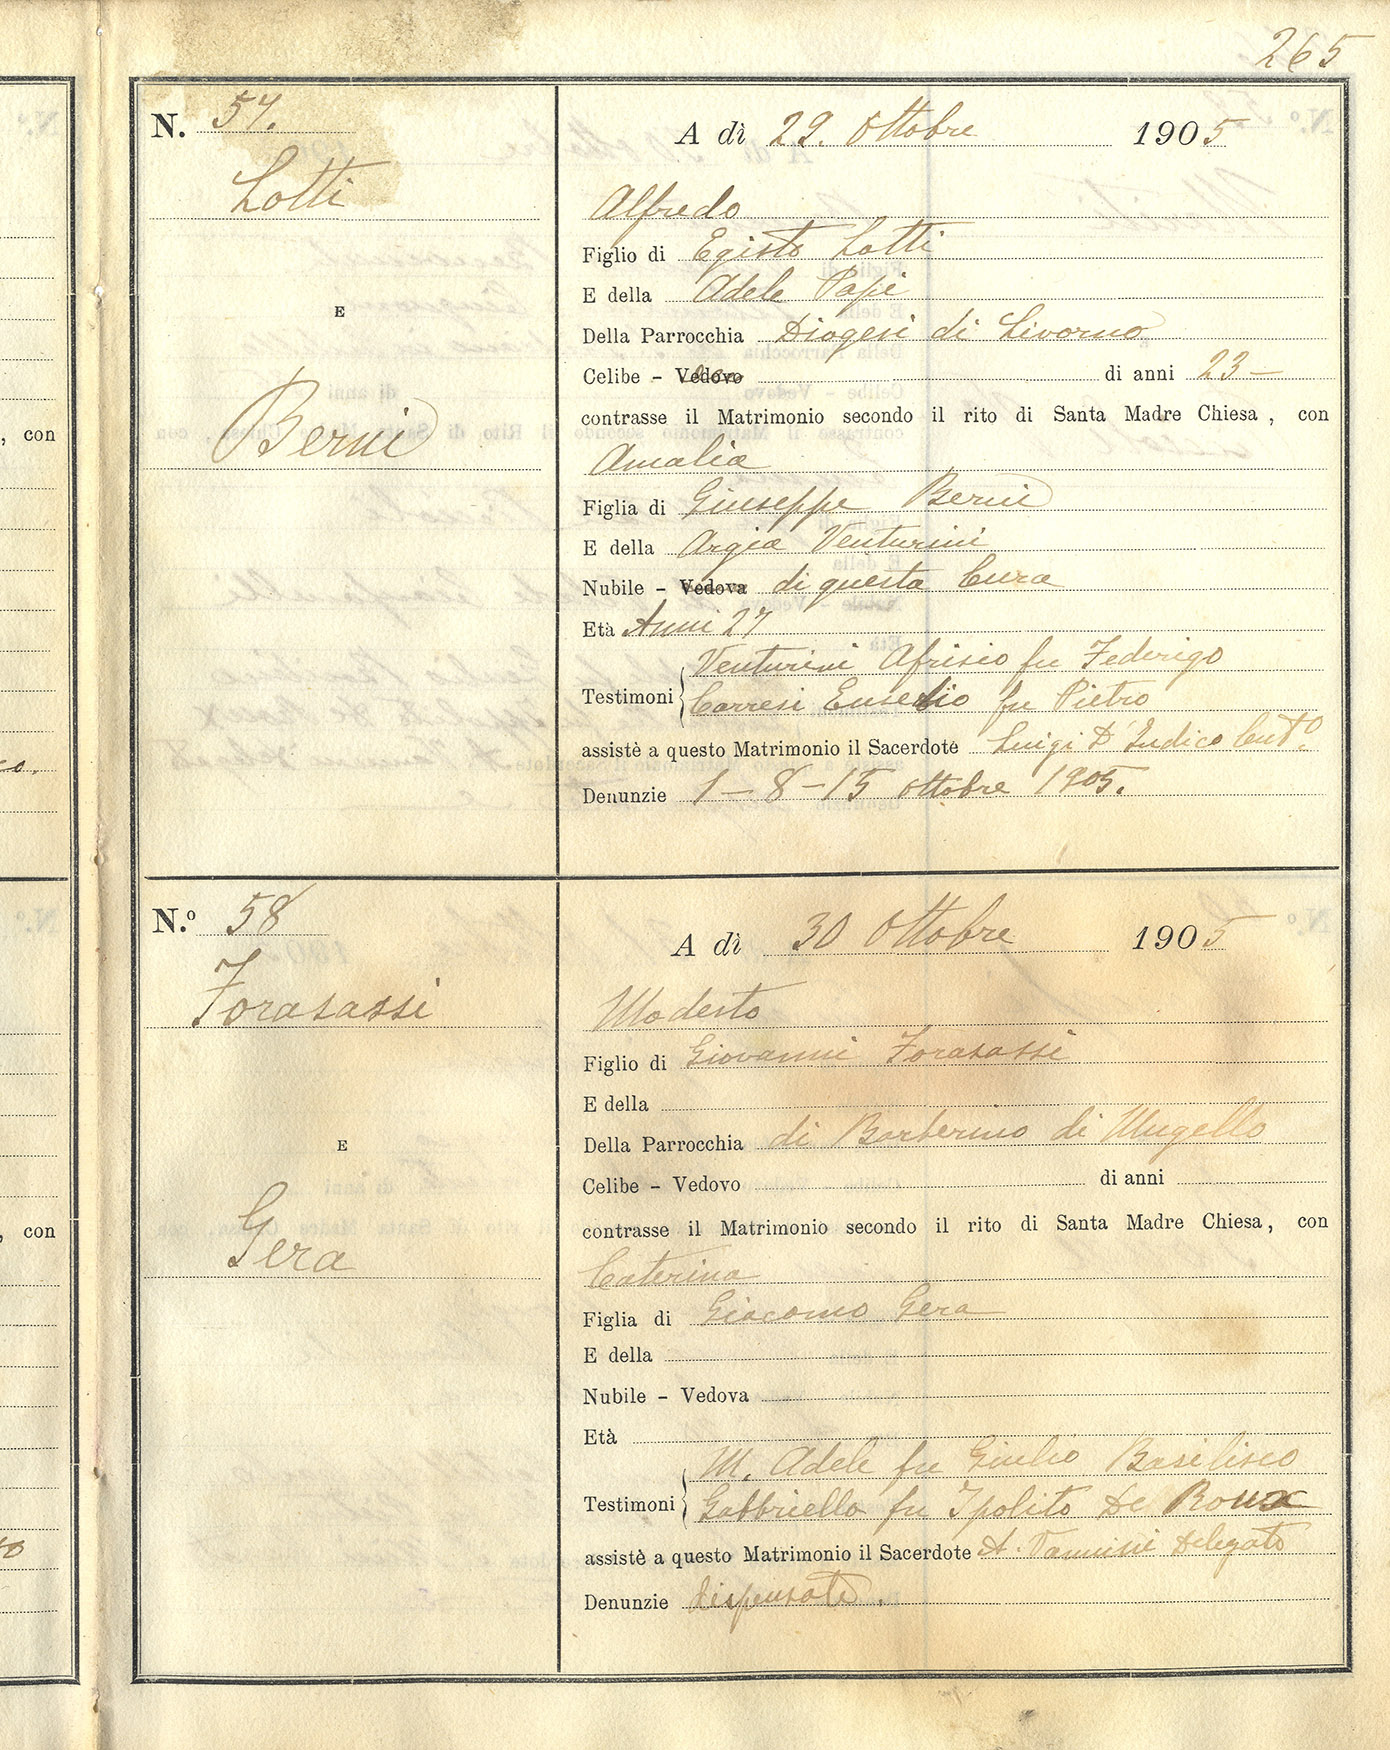 265
N. 57.
Lotti
E
Berni
A dì 29. Ottobre 1905
Alfredo
Figlio di Egisto Lotti
E della Adele Papi
Della Parrocchia Diogesi di Livorno
Celibe - Vedovo di anni 23 —
contrasse il Matrimonio secondo il rito di Santa Madre Chiesa, con
Amalia
Figlia di Giuseppe Berni
E della Argia Venturini
Nubile - Vedova di questa Cura
Età Anni 27
Venturini Afrisio fu Federigo
Testimoni Carresi Eusebio fu Pietro
assistè a questo Matrimonio il Sacerdote Luigi D'Indico Cut.º
Denunzie 1 — 8 — 15 Ottobre 1905.
N.º 58
Forasassi
E
Gera
A dì 30 Ottobre 1905
Modesto
Figlio di Giovanni Forasassi
E della
Della Parrocchia di Barberino di Mugello
Celibe - Vedovo di anni
contrasse il Matrimonio secondo il rito di Santa Madre Chiesa, con
Caterina
Figlia di Giacomo Gera
E della
Nubile - Vedova
Età
M. Adele fu Giulio Basilisco
Testimoni Gabbriello fu Ipolito De Roux
assistè a questo Matrimonio il Sacerdote A. Vannini Delegato
Denunzie dispensate.
, con
, con